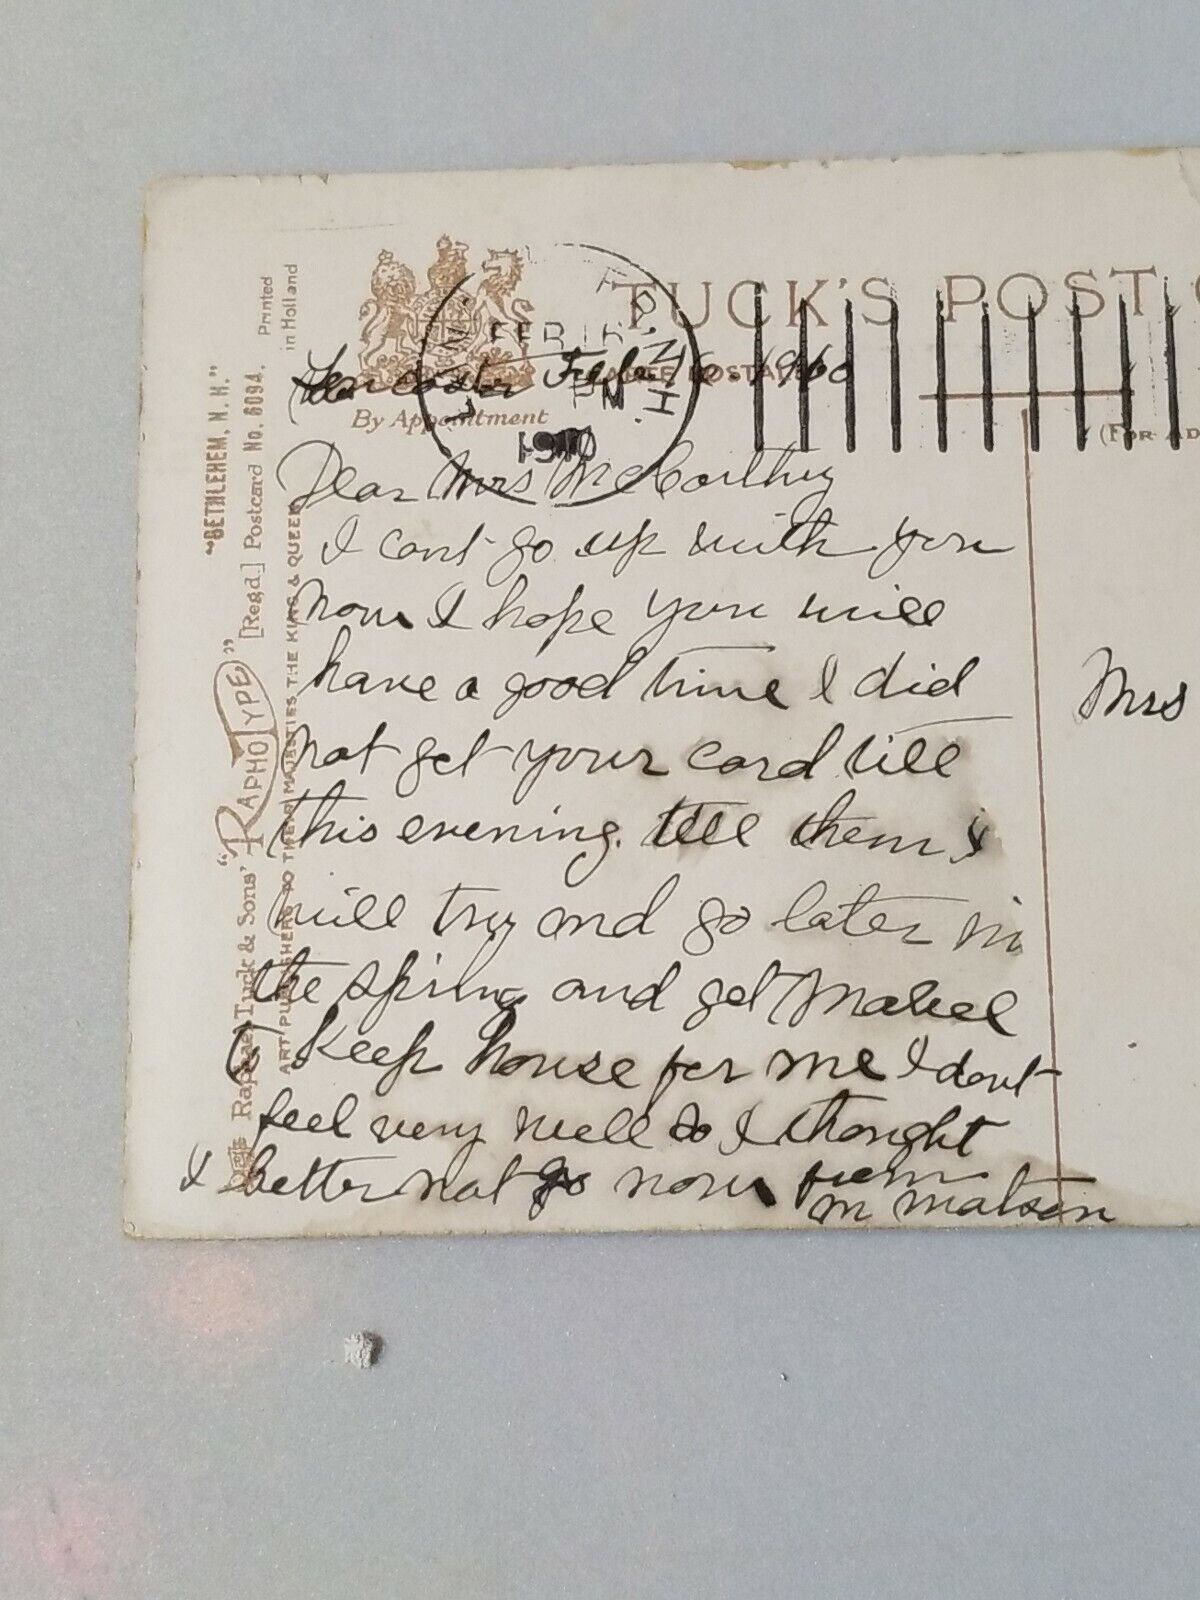 TUCK'S POST
By Appointment
FEB 16
PM
1910
N.H.
(FOR AD
Lancaster Feb. 16. 1910
Dear Mrs McCarthy
I cant go up with you
now I hope you will
have a good time I did
not get your card till
this evening. tell them I
will try and go later in
the spring and get Mabel
to keep house for me I dont
feel very well so I thought
I better not go now from
M Matson
Mrs
Raphael Tuck & Sons' "RAPHOTYPE" [Regd.] Postcard No. 6094.
"BETHLEHEM, N. H."
ART PUBLISHERS TO THEIR MAJESTIES THE KING & QUEEN
Printed
in Holland